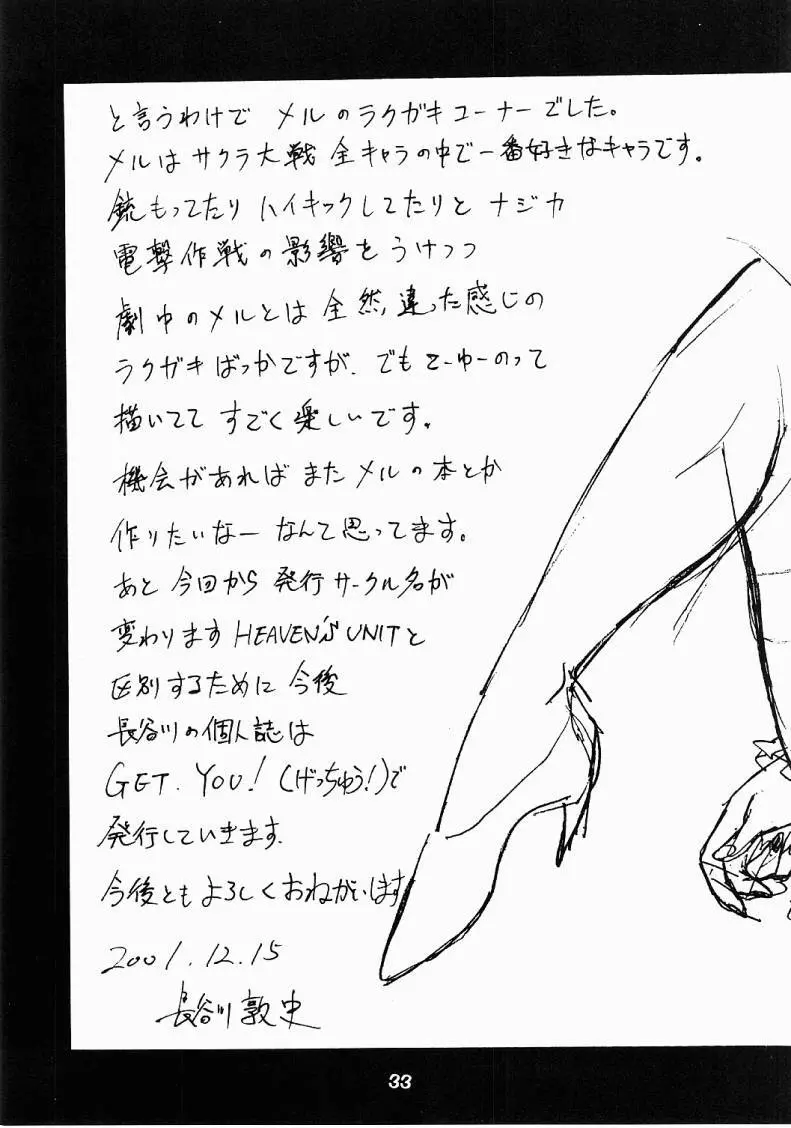 と言うわけで メルのラクガキコーナーでした。
メルはサクラ大戦 全キャラの中で一番好きなキャラです。
銃もってたり ハイキックしてたりと ナジカ
電撃作戦の影響をうけつつ
劇中のメルとは 全然違った感じの
ラクガキばっかですが、でもそーゆーのって
描いてて すごく楽しいです。
機会があれば またメルの本とか
作りたいなー なんて思ってます。
あと 今回から 発行サークル名が
変わります HEAVEN'S UNITと
区別するために 今後
長谷川の個人誌は
GET YOU! (げっちゅう!)で
発行していきます.
今後ともよろしくおねがいします
2001.12.15
長谷川敦史
33